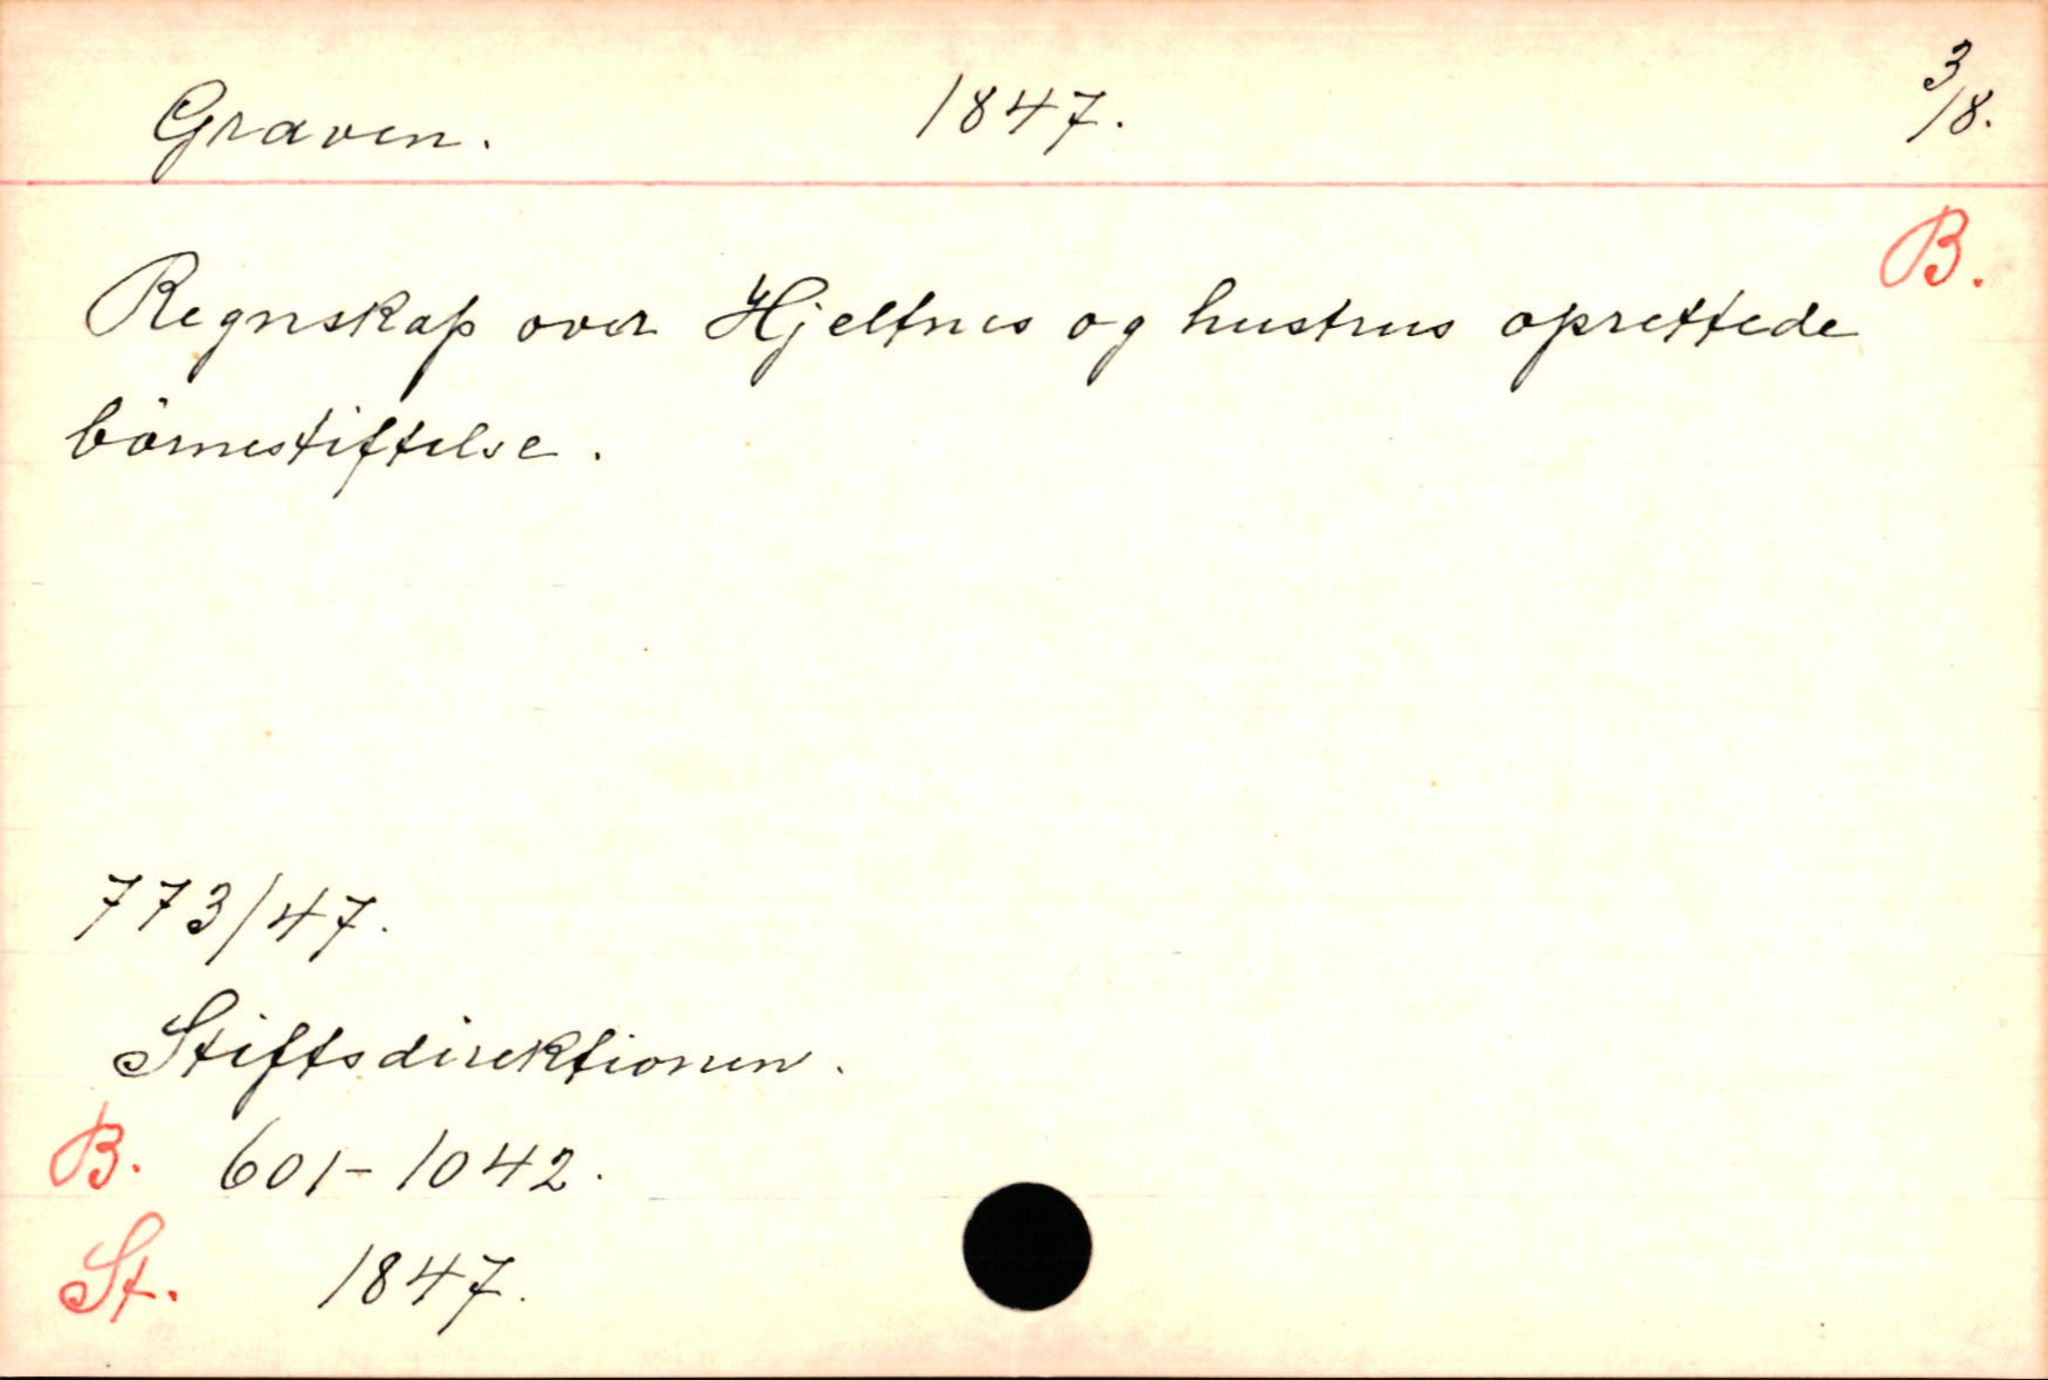 Graven. 1847. 3/8.
B.
Regnskap over Hjeltnes og hustrus oprettede
börnestiftelse.
773/47.
Stiftsdirektionen.
B. 601-1042.
St. 1847.